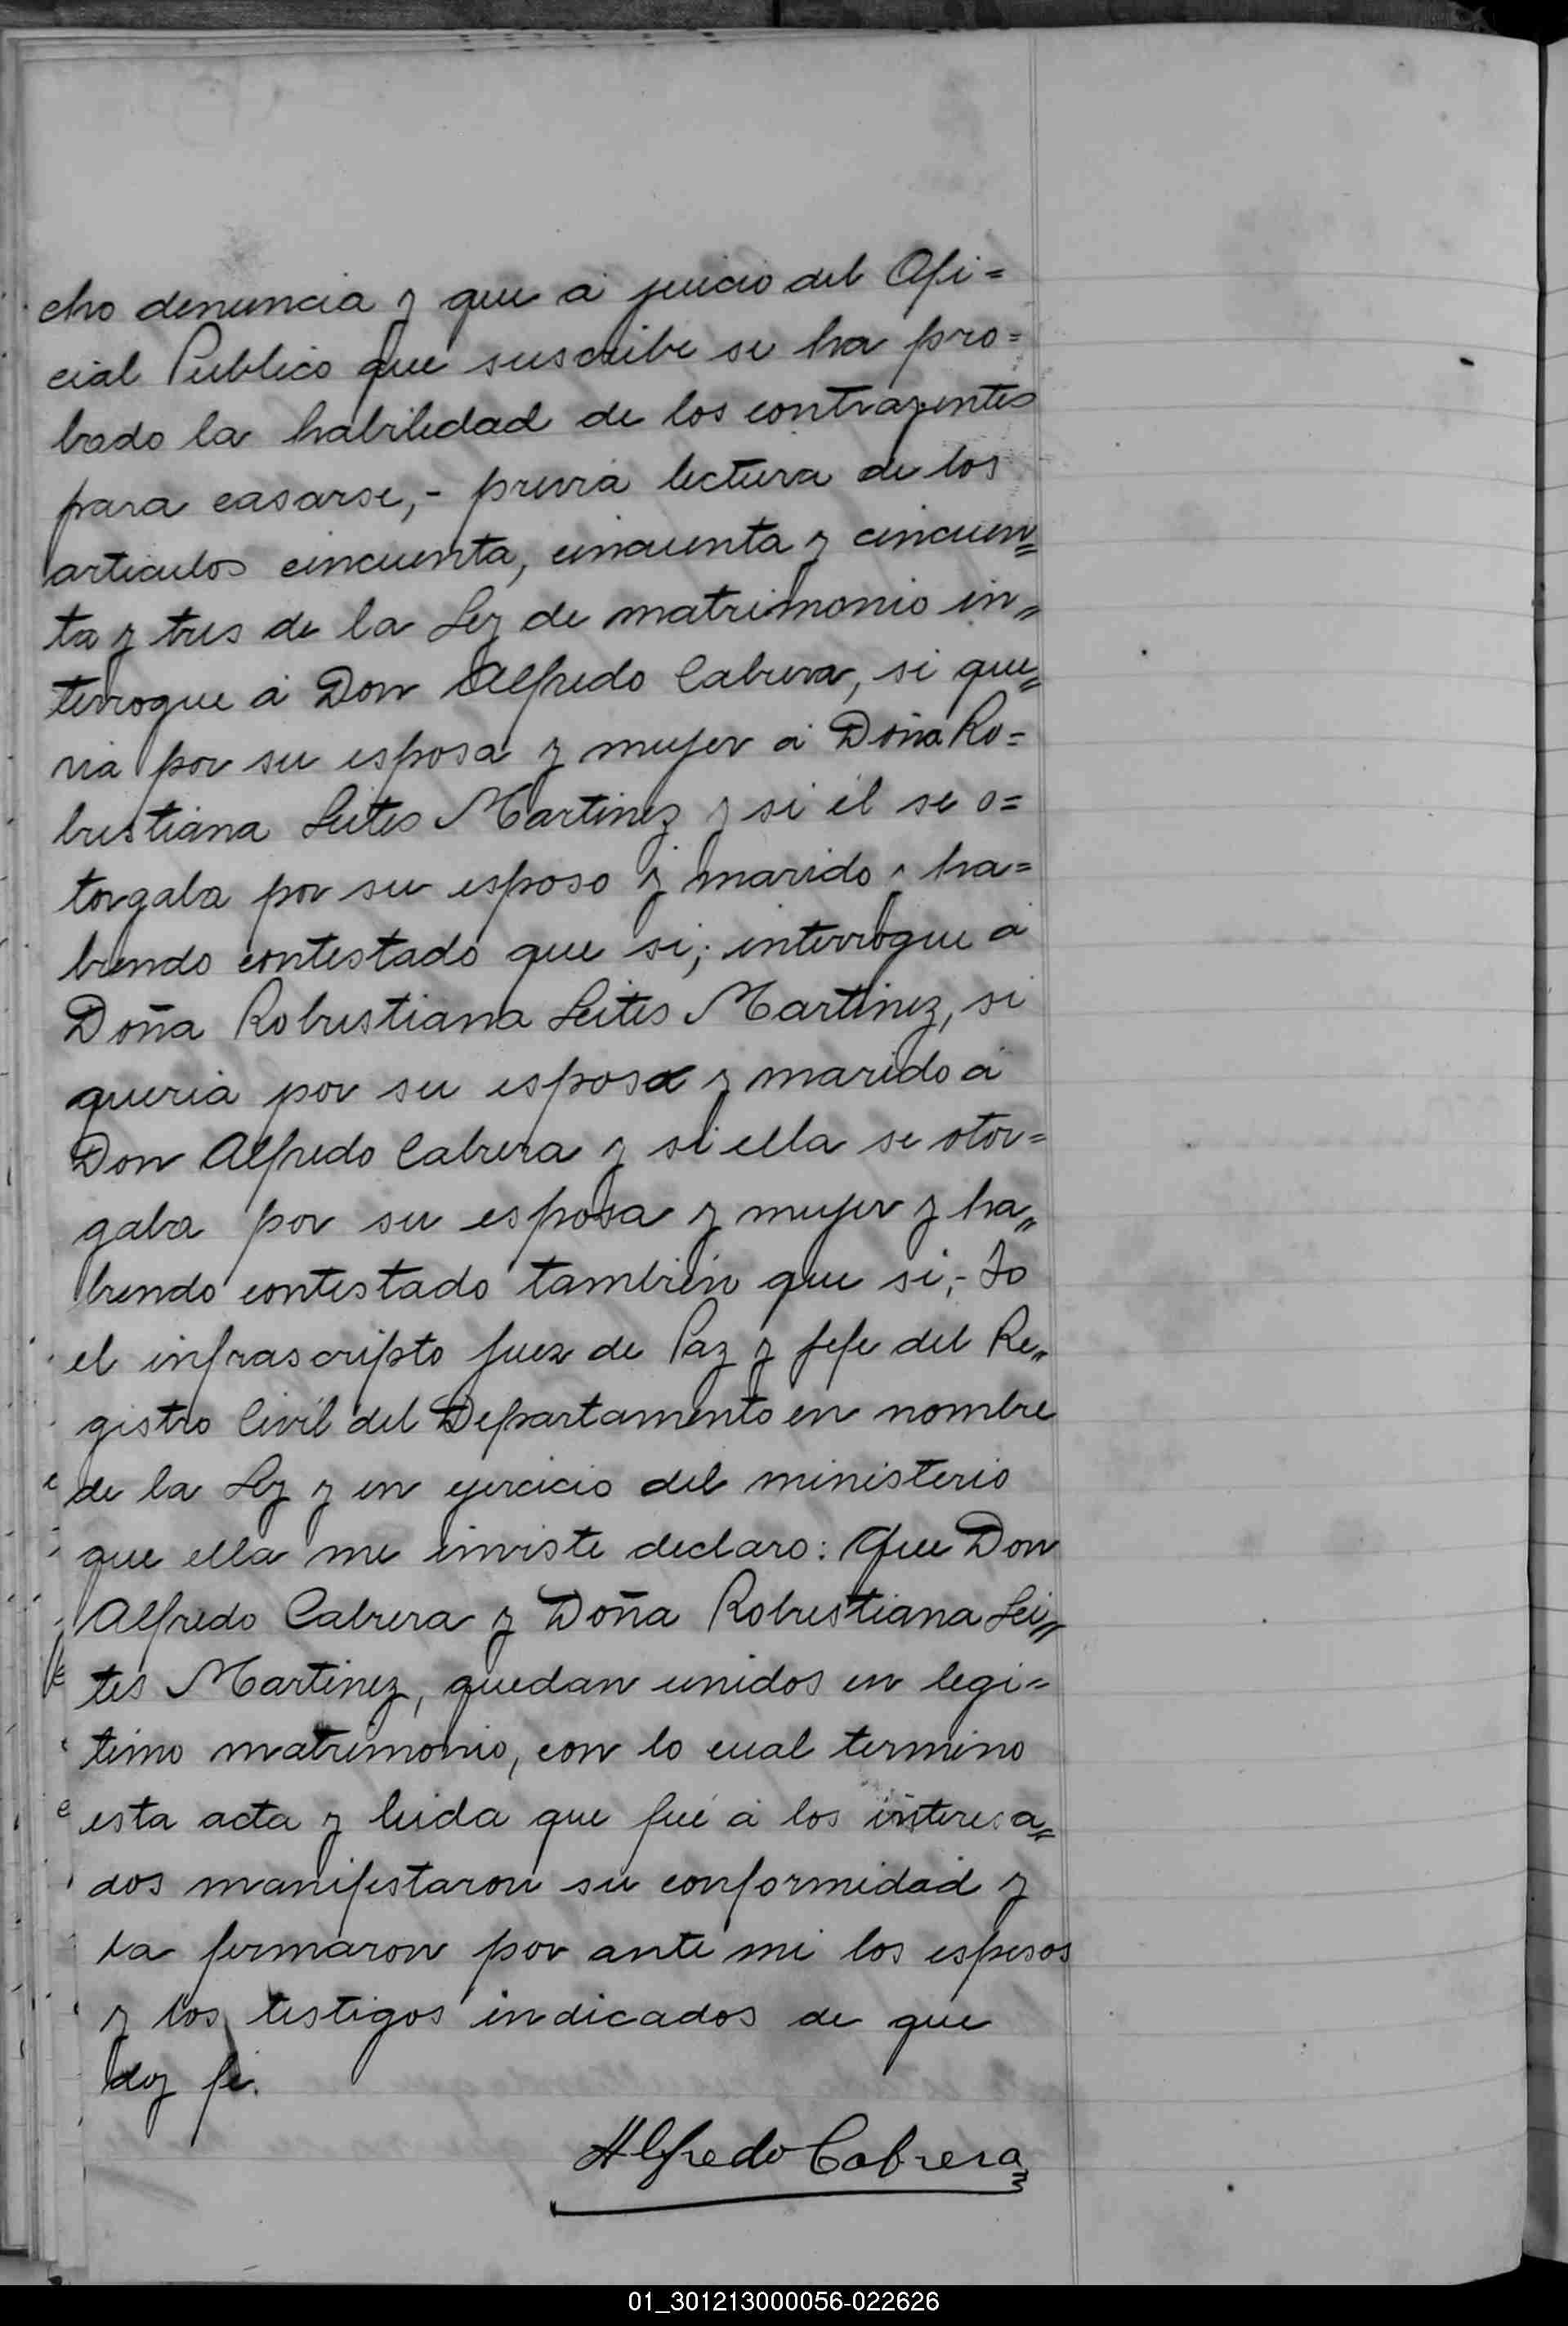 cho denuncia y que á juicio del Ofi=
cial Publico que suscribe se ha pro=
bado la habilidad de los contrayentes
para casarse,- previa lectura de los
articulos cincuenta, cincuenta y cincuen=
ta y tres de la Ley de matrimonio in=
terrogue á Don Alfredo Cabrera, si que=
ria por su esposa y mujer á Doña Ro=
bustiana Leites Martinez y si él se o=
torgaba por su esposo y marido y ha=
biendo contestado que si; interrogue á
Doña Robustiana Leites Martinez, si
queria por su esposo y marido á
Don Alfredo Cabrera y si ella se otor=
gaba por su esposa y mujer y ha=
biendo contestado tambien que si,- Yo
el infrascripto Juez de Paz y Jefe del Re=
gistro Civil del Departamento en nombre
de la Ley y en ejercicio del ministerio
que ella me inviste declaro: Que Don
Alfredo Cabrera y Doña Robustiana Lei=
tes Martinez, quedan unidos en legi=
timo matrimonio, con lo cual termino
esta acta y leida que fué á los interesa=
dos manifestaron su conformidad y
la firmaron por ante mi los esposos
y los testigos indicados de que
doy fé.
Alfredo Cabrera
01_301213000056-022626